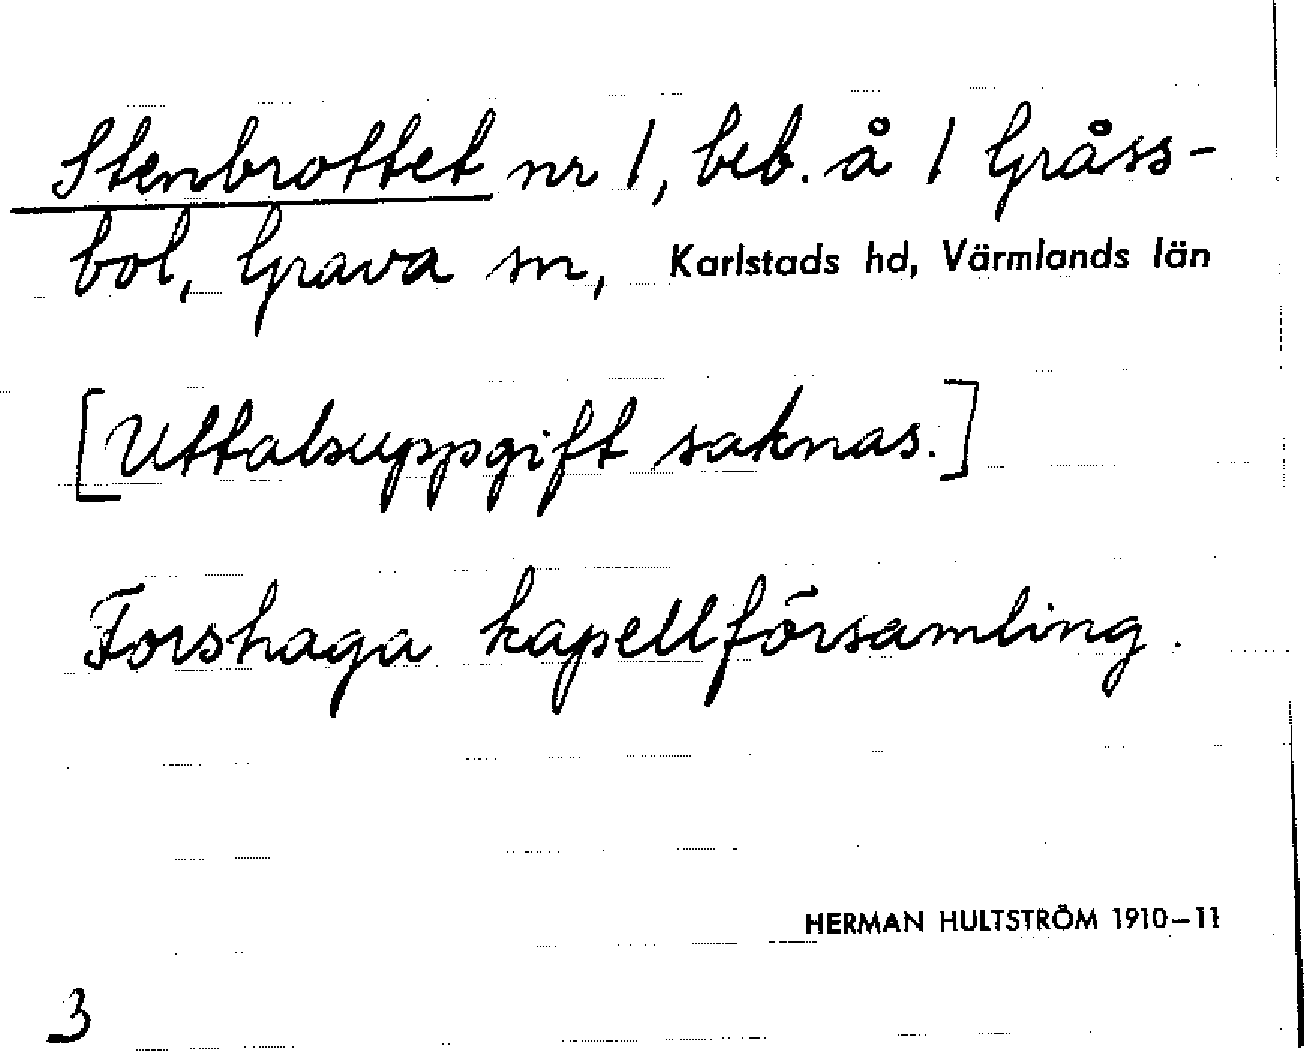 Stenbrottet nr 1, beb. å 1 Gråss-
bol, Grava sn, Karlstads hd, Värmlands län
[Uttalsuppgift saknas.]
Forshaga kapellförsamling.
HERMAN HULTSTRÖM 1910–11
3